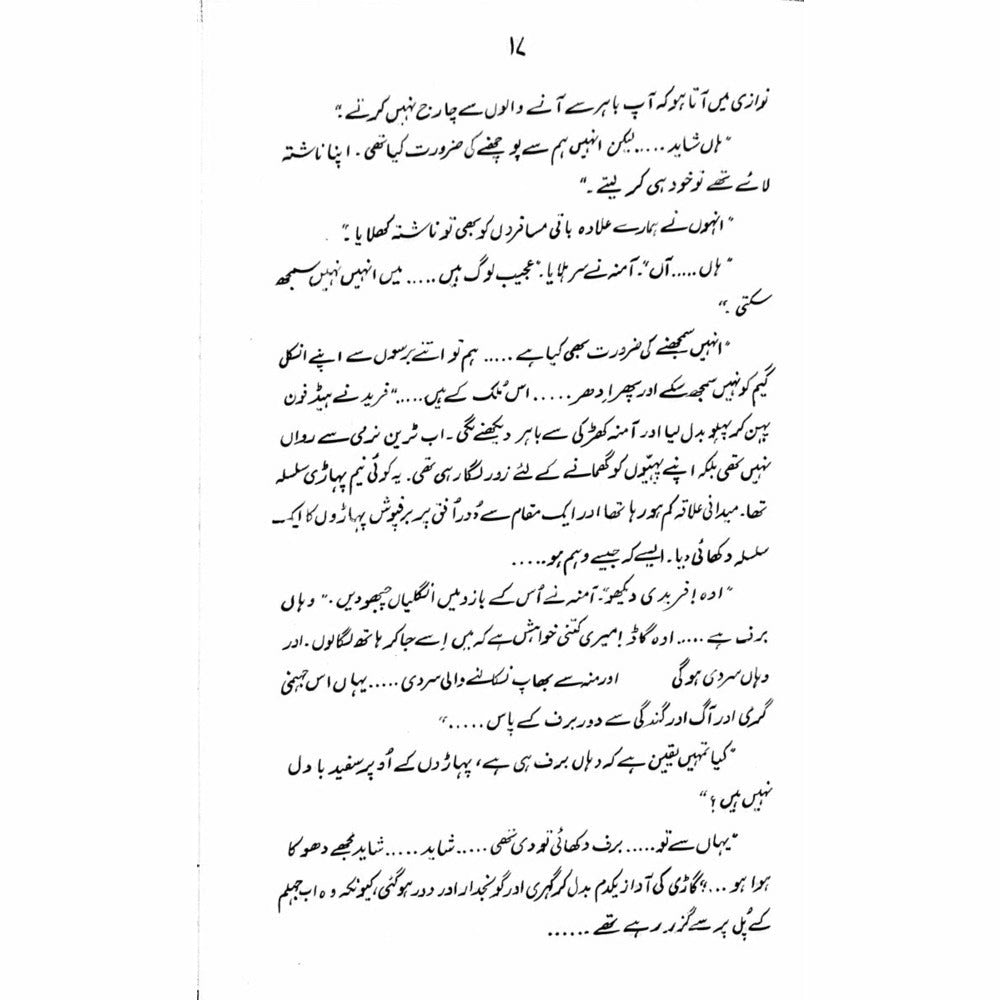 ۱۷
نوازی میں آتا ہو کہ آپ باہر سے آنے والوں سے چارج نہیں کرتے ۔"
"ہاں شاید ..... لیکن انہیں ہم سے پوچھنے کی ضرورت کیا تھی ۔ اپنا ناشتہ
لائے تھے تو خود ہی کر لیتے ۔"
"انہوں نے ہمارے علاوہ باقی مسافروں کو بھی تو ناشتہ کھلایا ۔"
"ہاں ..... آں"۔ آمنہ نے سر ہلایا۔ "عجیب لوگ ہیں ..... میں انہیں نہیں سمجھ
سکتی ۔"
"انہیں سمجھنے کی ضرورت بھی کیا ہے ..... ہم تو اتنے برسوں سے اپنے انکل
گیم کو نہیں سمجھ سکے اور پھر اِدھر ..... اس مُلک کے ہیں ....." فرید نے ہیڈ فون
پہن کر پہلو بدل لیا اور آمنہ کھڑکی سے باہر دیکھنے لگی ۔ اب ٹرین نرمی سے رواں
نہیں تھی بلکہ اپنے پہیّوں کو گھمانے کے لئے زور لگا رہی تھی۔ یہ کوئی نیم پہاڑی سلسلہ
تھا۔ میدانی علاقہ کم ہو رہا تھا اور ایک مقام سے دُور اُفق پر برفپوش پہاڑوں کا ایک
سلسلہ دکھائی دیا۔ ایسے کہ جیسے وہم ہو .....
"اوہ! فریدی دیکھو"۔ آمنہ نے اُس کے بازو میں انگلیاں چبھو دیں ۔ "وہاں
برف ہے ..... اوہ گاڈ! میری کتنی خواہش ہے کہ میں اِسے جا کر ہاتھ لگاؤں ۔ اور
وہاں سردی ہو گی اور منہ سے بھاپ نکالنے والی سردی ..... یہاں اس جہنمی
گرمی اور آگ اور گندگی سے دور برف کے پاس ....."
"کیا تمہیں یقین ہے کہ وہاں برف ہی ہے، پہاڑوں کے اُوپر سفید بادل
نہیں ہیں ؟"
"یہاں سے تو ..... برف دکھائی تو دی تھی ..... شاید ..... شاید مجھے دھوکا
ہوا ہو ...؟ گاڑی کی آواز یکدم بدل کر گہری اور گونجدار اور دور ہو گئی، کیونکہ وہ اب جہلم
کے پُل پر سے گزر رہے تھے ......